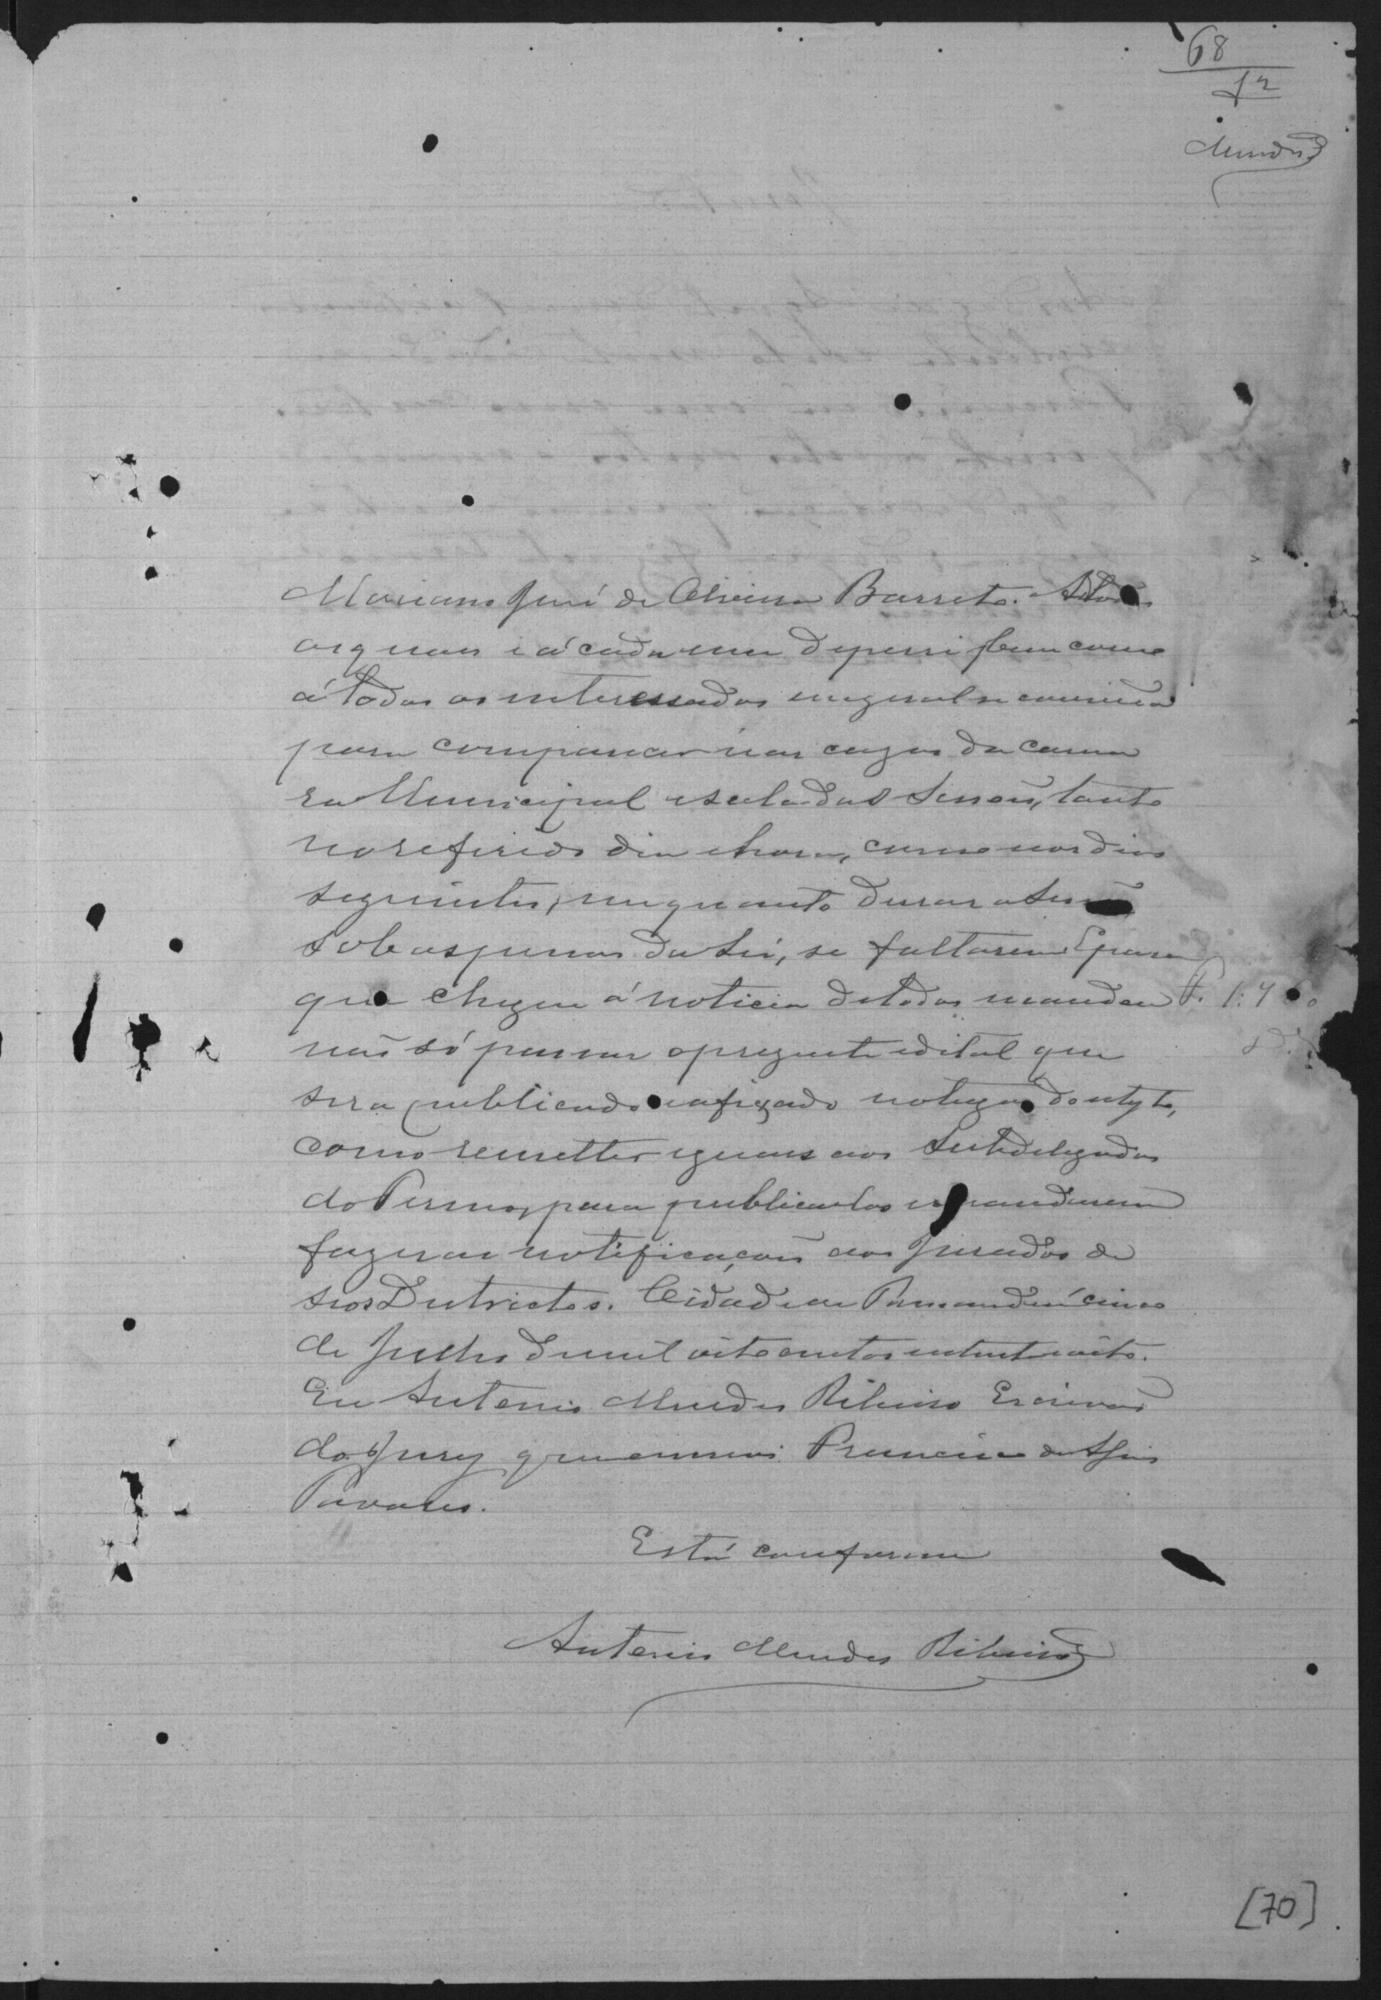 68
12
Mendes
Mariano José de Oliveira Barreto. A todos
os quaes e á cada um de per si, bem como
á todos os interessados em geral se convida
para comparecer nas cazas da cama
ra Municipal e sala das Sessões, tanto
no referido dia e hora, como nos dias
seguintes, enquanto durar a Sessão
sob as penas da Lei, se faltarem. E para
que chegue á noticia de todos mandou
não só passar o prezente edital que
será publicado e afixado no lugar do estylo,
como remetter iguaes aos Subdelegados
do Termo, para publical-os e mandarem
fazer as notificações aos Jurados de
seos Districtos. Cidade de cinco
de Julho de mil oito centos e oitenta e oito.
Eu Antonio Mendes Ribeiro Escrivão
do Jury que escrevi. Francisco de Assis
Tavares.
Está conforme
Antonio Mendes Ribeiro
[70]